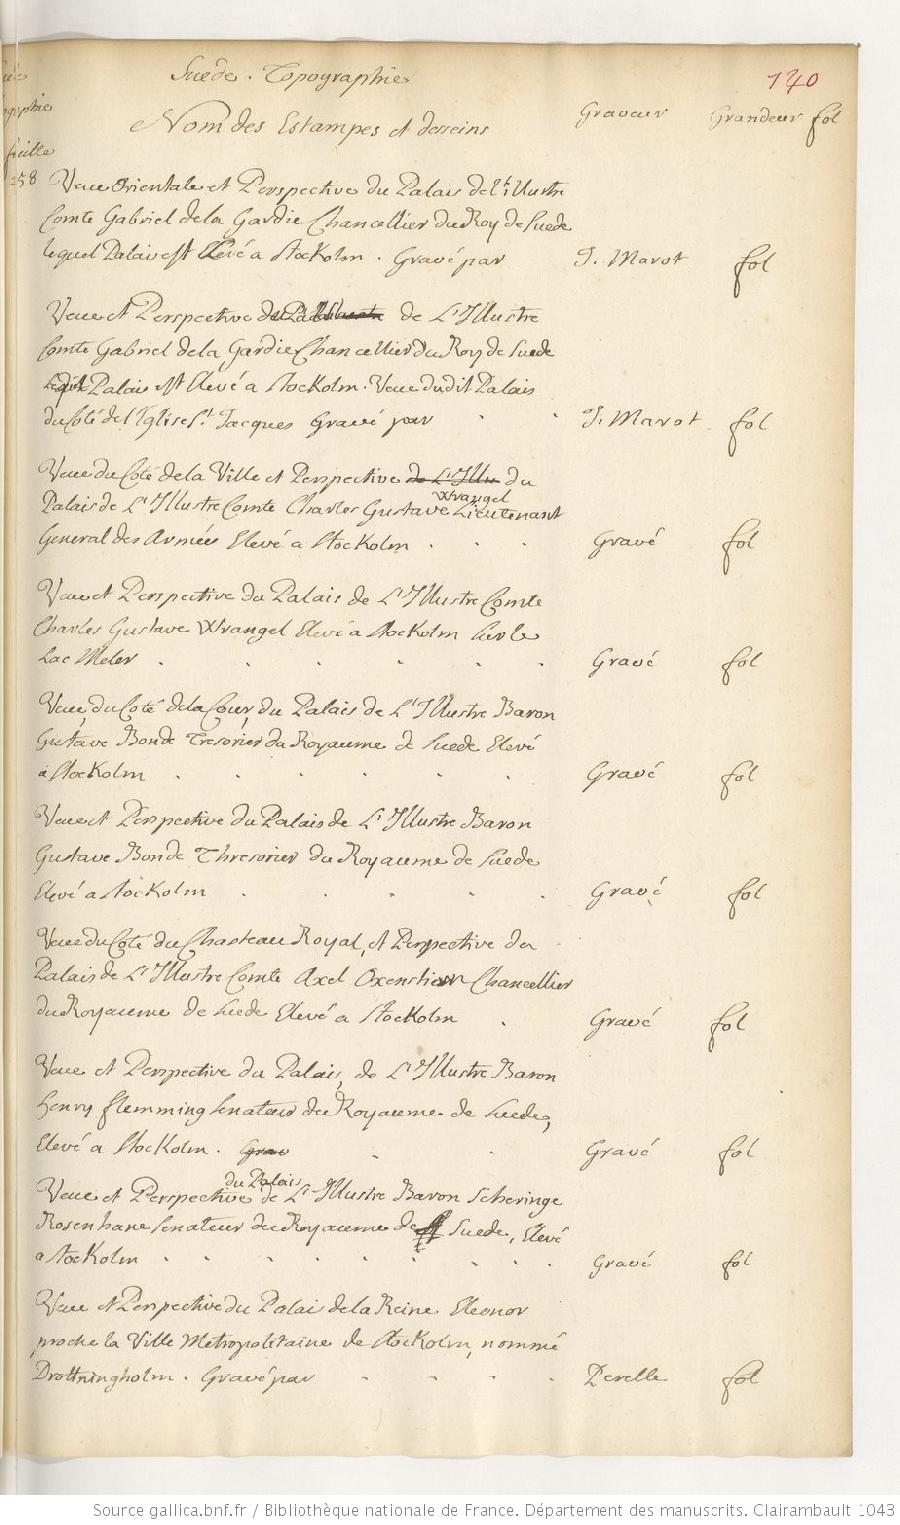 Suede. Topographie
140
Nom des Estampes et desseins Graveur Grandeur fol
feuille
258
Veue Orientale et Perspective du Palais de l'illustre
Comte Gabriel de la Gardie Chancellier du Roy de Suede
lequel Palais est Elevé a Stockolm. Gravé par J. Marot fol
Veue et Perspective de L'Illustre
Comte Gabriel de la Gardie Chancellier du Roy de Suede
Palais est Elevé a Stockolm. Veue dudit Palais
du Coté de l'Eglise St. Jacques Gravé par J. Marot fol
Veue du Coté de la Ville et Perspective de L'Illu du
Wrangel
Palais de L'Illustre Comte Charles Gustave Lieutenant
General des Armées Elevé a Stockolm Gravé fol
Veue et Perspective du Palais de L'Illustre Comte
Charles Gustave Wrangel Elevé a Stockolm sur le
Lac Meler Gravé fol
Veue du Coté de la Cour, du Palais de L'Illustre Baron
Gustave Bonde Tresorier du Royaume de Suede Elevé
a Stockolm Gravé fol
Veue et Perspective du Palais de L'Illustre Baron
Gustave Bonde Thresorier du Royaume de Suede
Elevé a Stockolm Gravé fol
Veue du Coté du Chasteau Royal, et Perspective du
Palais de L'Illustre Comte Axel Oxenstiern Chancellier
du Royaume de Suede Elevé a Stockolm Gravé fol
Veue et Perspective du Palais, de L'Illustre Baron
Henry Flemming Senateur du Royaume de Suede,
Elevé a Stockolm. Grav Gravé fol
du Palais
Veue et Perspective de L'Illustre Baron Scheringe
Rosenhane Senateur du Royaume de Suede, Elevé
a Stockolm Gravé fol
Veue et Perspective du Palais de la Reine Eleonor
proche la Ville Metropolitaine de Stockolm, nommé
Drottningholm. Gravé par Perelle fol
Source gallica.bnf.fr / Bibliothèque nationale de France. Département des manuscrits. Clairambault 1043